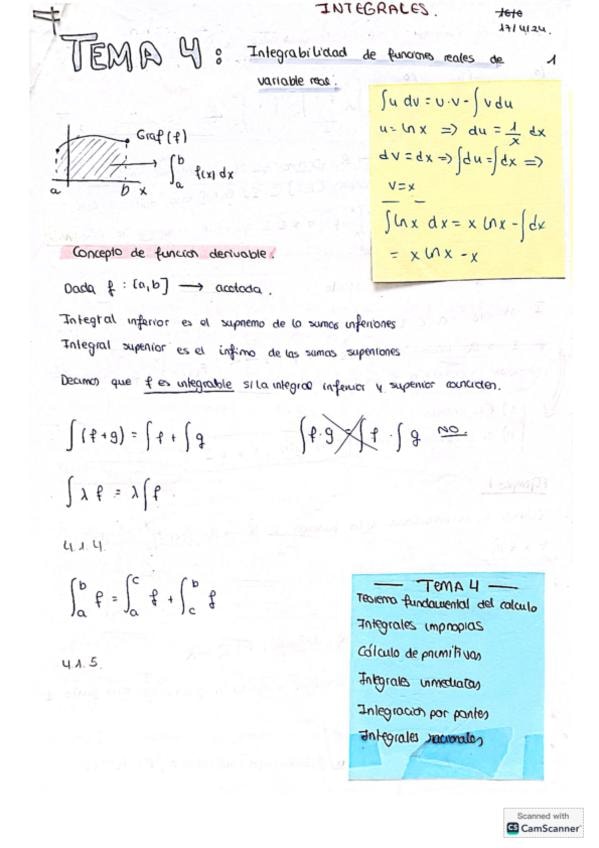 INTEGRALES.
17/4/24.
TEMA 4: Integrabilidad de funciones reales de
variable real.
1
Graf(f)
∫_a^b f(x) dx
a b x
∫u dv = u·v - ∫v du
u = ln x => du = 1/x dx
dv = dx => ∫du = ∫dx =>
v = x
∫ln x dx = x ln x - ∫dx
= x ln x - x
Concepto de función derivable.
Dada f : [a,b] → acotada.
Integral inferior es el supremo de la sumas inferiores
Integral superior es el ínfimo de las sumas superiores
Decimos que f es integrable si la integral inferior y superior coinciden.
∫(f+g) = ∫f + ∫g
∫f·g = ∫f · ∫g NO.
∫λf = λ∫f.
4.1.4.
∫_a^b f = ∫_a^c f + ∫_c^b f
4.1.5.
— TEMA 4 —
Teorema fundamental del calculo
Integrales impropias
Cálculo de primitivas
Integrales inmediatas
Integracion por partes
Integrales racionales
Scanned with
CS CamScanner